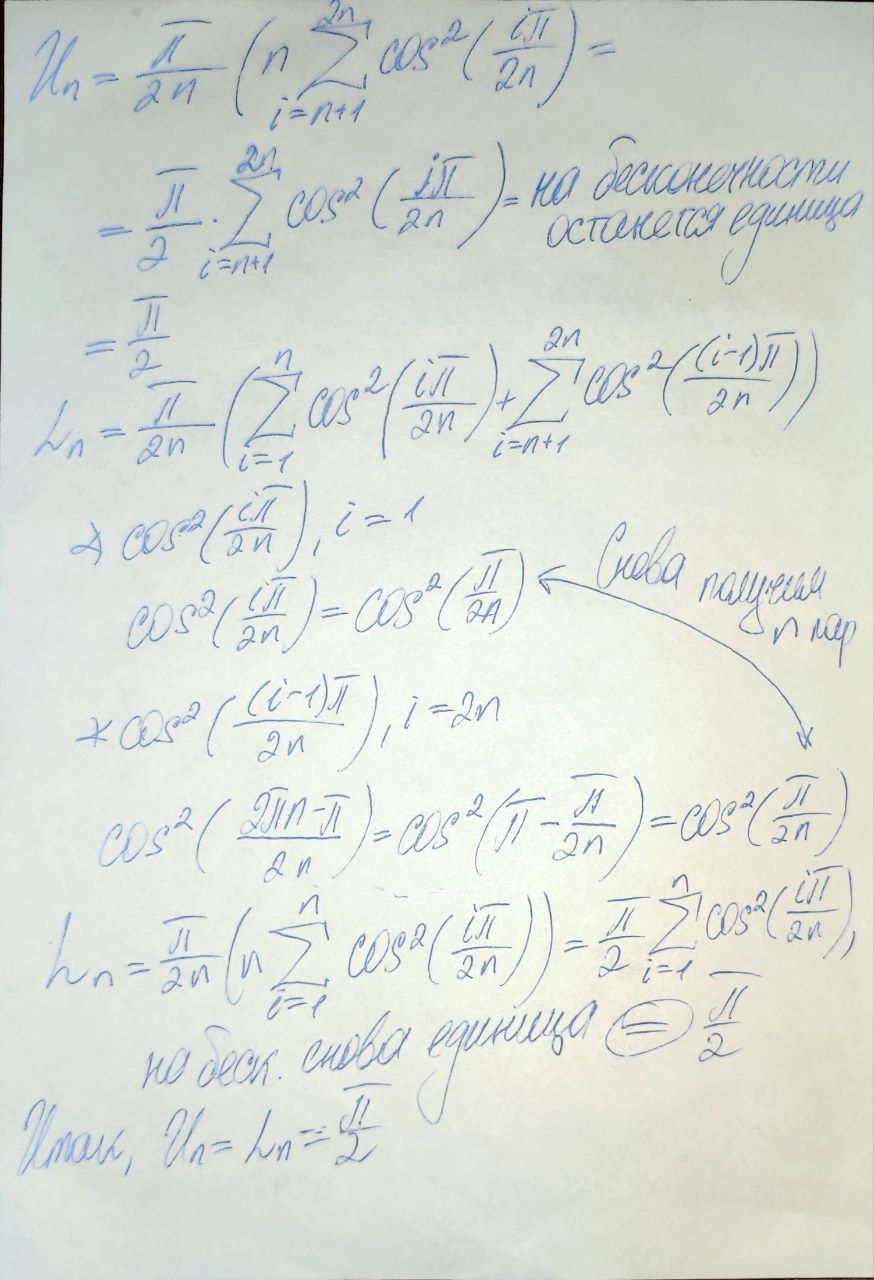 Uₙ = π/2n (n ∑_{i=n+1}^{2n} cos²(iπ/2n) =
= π/2 · ∑_{i=n+1}^{2n} cos²(iπ/2n) = на бесконечности
останется единица
= π/2
Lₙ = π/2n (∑_{i=1}^{n} cos²(iπ/2n) + ∑_{i=n+1}^{2n} cos²((i-1)π/2n))
* cos²(iπ/2n), i = 1
cos²(iπ/2n) = cos²(π/2n)
Снова получим
n пар
* cos²((i-1)π/2n), i = 2n
cos²((2πn-π)/2n) = cos²(π - π/2n) = cos²(π/2n)
Lₙ = π/2n (n ∑_{i=1}^{n} cos²(iπ/2n)) = π/2 ∑_{i=1}^{n} cos²(iπ/2n),
на беск. снова единица = π/2
Итак, Uₙ = Lₙ = π/2